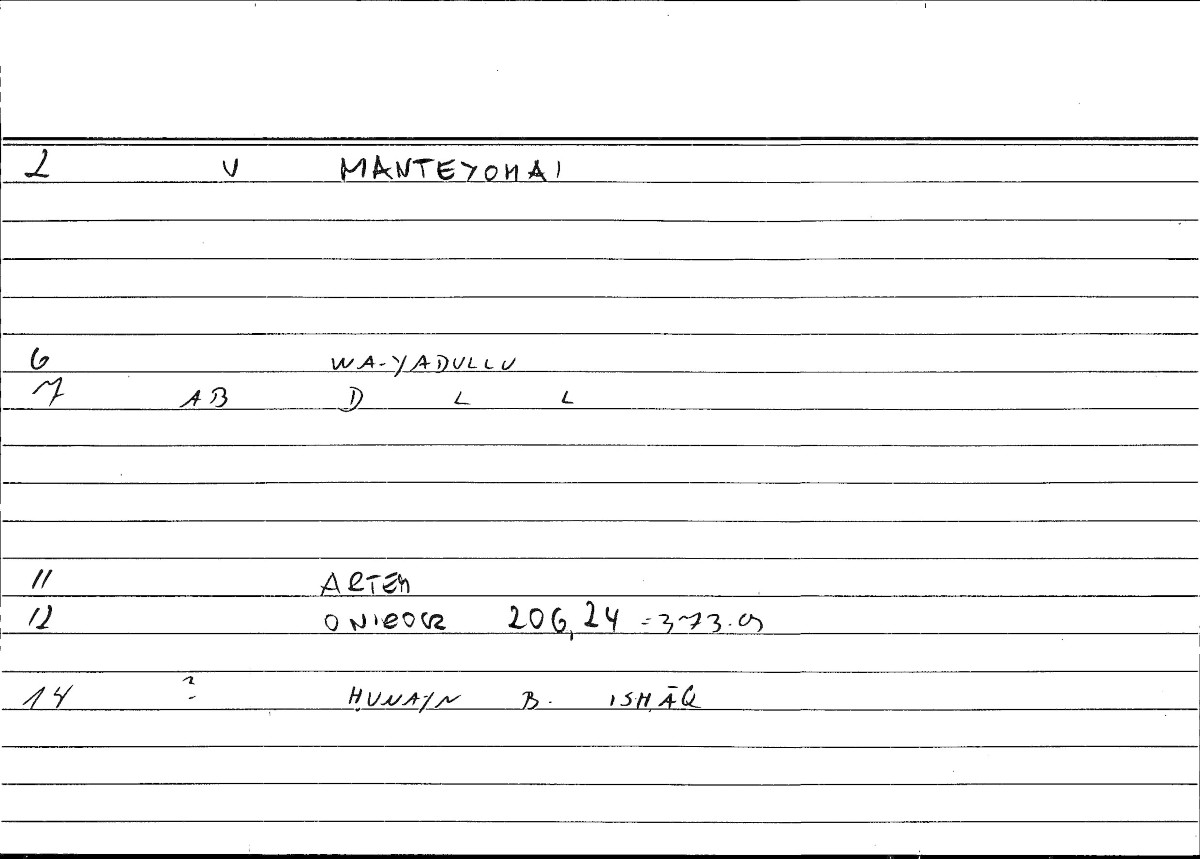 2 V MANTEYOMAI
6 WA-YADULLU
7 AB D L L
11 ARTEM
12 ONIROCR 206,24 = 373.9
14 ? ḤUNAYN B. ISḤĀQ